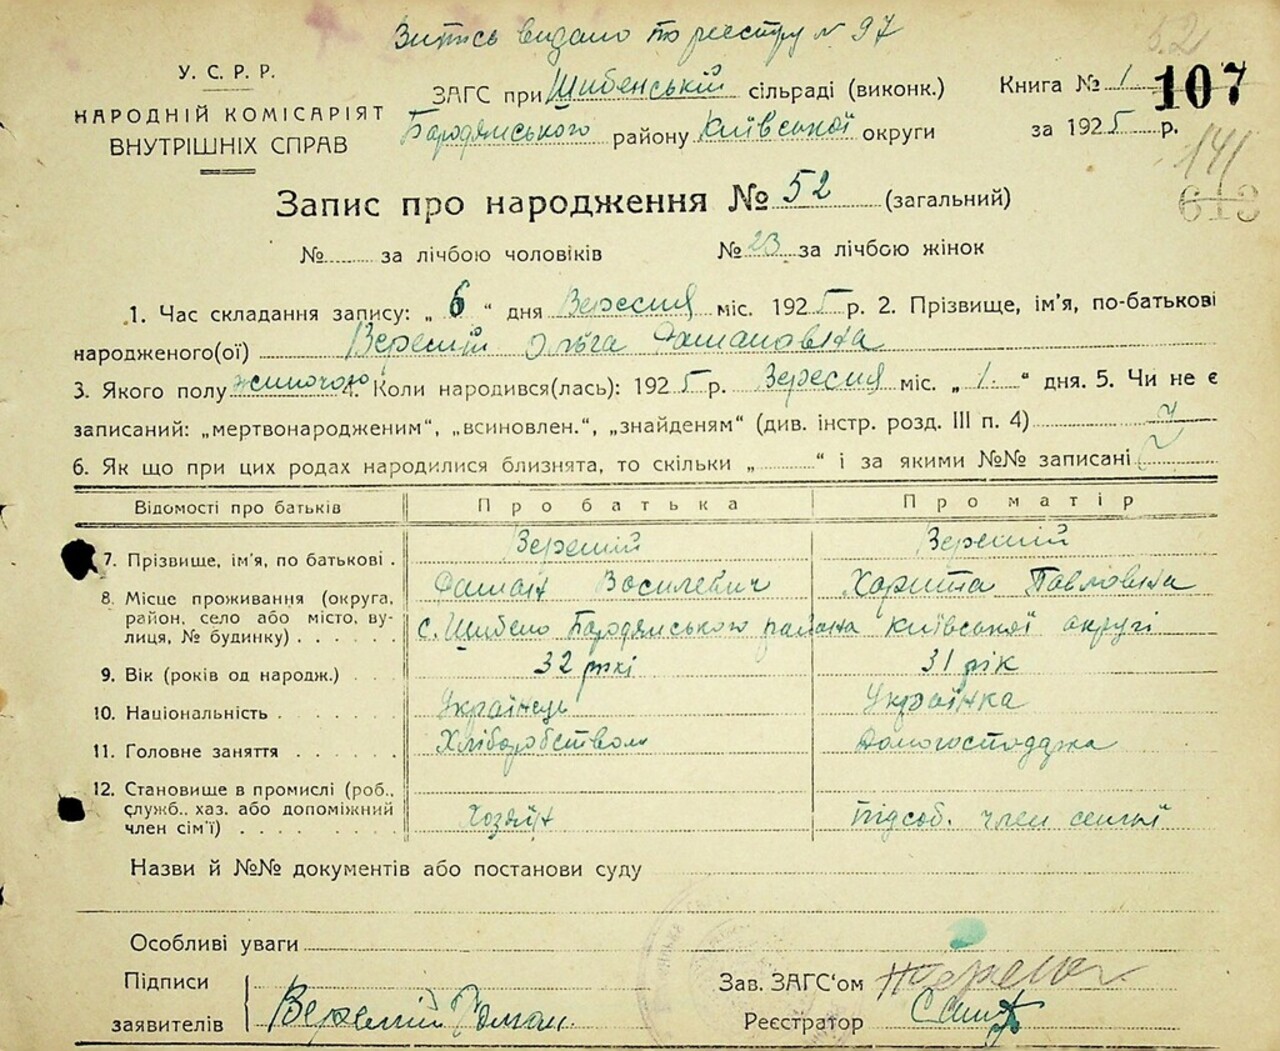 Витись видано по реєстру № 97
52
У. С. Р. Р.
НАРОДНІЙ КОМІСАРІЯТ
ВНУТРІШНІХ СПРАВ
ЗАГС при Шибенській сільраді (виконк.)
Бародянського району Київської округи
Книга № 1
107
за 1925 р.
141
613
Запис про народження № 52 (загальний)
№ за лічбою чоловіків № 23 за лічбою жінок
1. Час складання запису: „ 6 “ дня Вересня міс. 1925 р. 2. Прізвище, ім'я, по-батькові
народженого(ої) Веремій Ольга
3. Якого полу жиночою 4. Коли народився(лась): 1925 р. Вересня міс. „ 1. “ дня. 5. Чи не є
записаний: „мертвонародженим“, „всиновлен.“, „знайденям“ (див. інстр. розд. III п. 4)
6. Як що при цих родах народилися близнята, то скільки „ “ і за якими №№ записані
Відомості про батьків Про батька Про матір
7. Прізвище, ім'я, по батькові . Веремій Веремій
Василевич Харита Павловна
8. Місце проживання (округа, район, село або місто, вулиця, № будинку) с. Шибено Бародянського района Київської округі
9. Вік (років од народж.) 32 рокі 31 рік
10. Національність Українець Українка
11. Головне заняття Хліборобством Домогосподжа
12. Становище в промислі (роб., служб., хаз. або допоміжний член сім'ї) Хозяїн підсоб. член семьї
Назви й №№ документів або постанови суду
Особливі уваги
Підписи
заявителів Веремій
Зав. ЗАГС'ом
Реєстратор